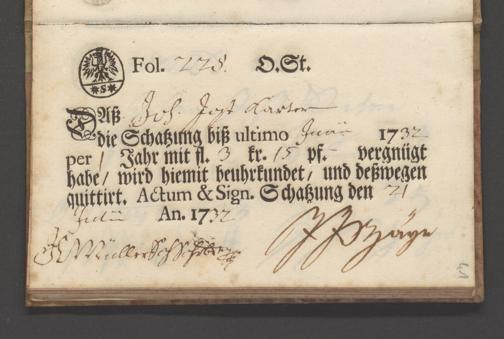 *S*
Fol. 228. O.St.
Daß Joh. Jost Karter
die Schatzung biß ultimo Junii 1732
per 1 Jahr mit fl. 3 kr. 15 pf. vergnügt
habe/ wird hiemit beuhrkundet/ und deßwegen
quittirt. Actum & Sign. Schatzung den 21
Junii An. 1732
Müller